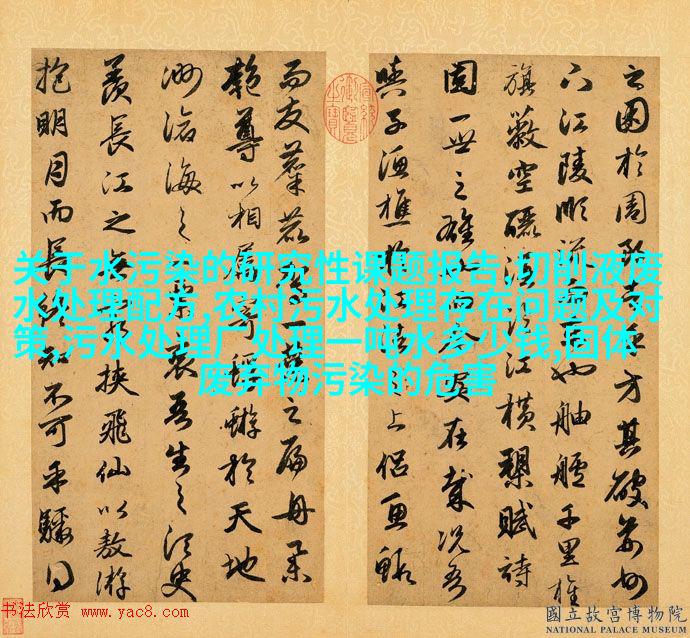 之困於周郎者乎方其破荆州
下江陵順流而東也舳艫千里旌
旗蔽空釃酒臨江橫槊賦詩
固一世之雄也而今安在哉況吾
與子漁樵於江渚之上侶魚蝦
而友麋鹿駕一葉之扁舟舉
匏尊以相屬寄蜉蝣於天地
渺滄海之一粟哀吾生之須臾
羨長江之無窮挾飛仙以敖游
抱明月而長終知不可乎驟得
关于水污染的研究性课题报告,切削液废
水处理配方,农村污水处理存在问题及对
策,污水处理厂处理一吨水多少钱,固体
废弃物污染的危害
书法欣赏 www.yac8.com
國立故宮博物院
NATIONAL PALACE MUSEUM